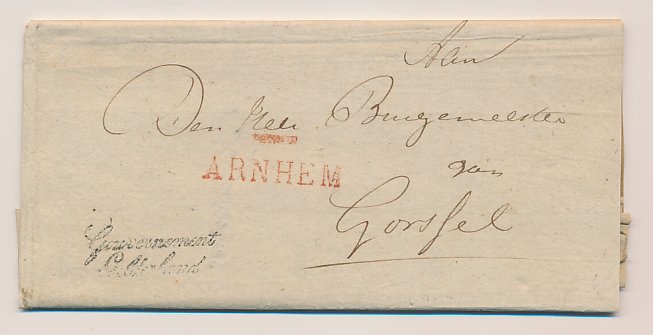 Aan
Den Heer Burgemeester
ARNHEM
van
Gorssel
Gouvernement
Gelderland